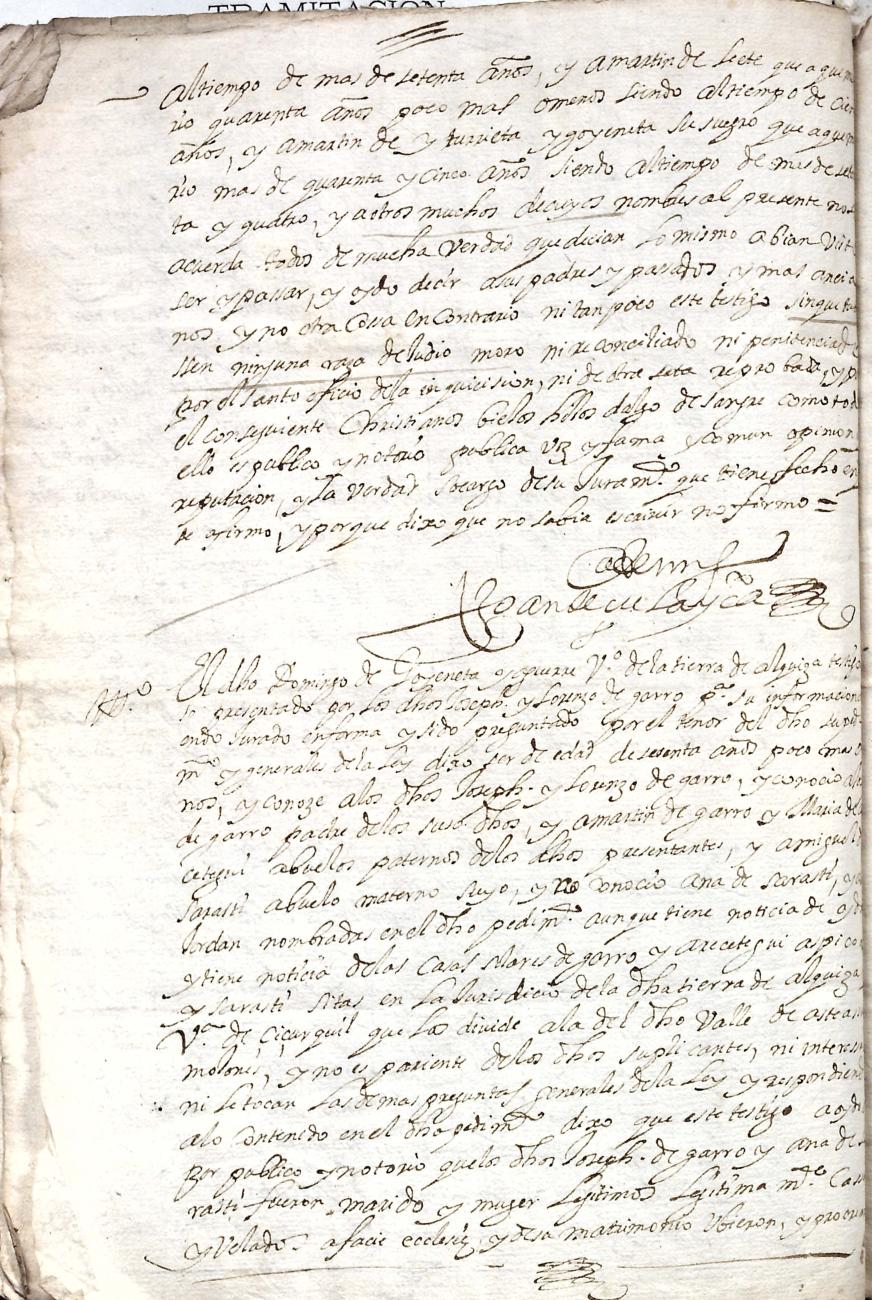 TRAMITACION
al tiempo de mas de setenta años, y a martin de leete que a que mu
rio quarenta años poco mas o menos siendo al tiempo de cien
años, y a martin de yturrieta y goyeneta su suegro que a que mu
rio mas de quarenta y cinco años siendo al tiempo de mas de seten
ta y quatro, y a otros muchos de cuyos nombres al presente no se
acuerda todos de mucha verdad que decian lo mismo abian vist
ser y passar, y oydo decir a sus padres y passados y mas ancia
nos y no otra cossa en contrario ni tan poco este testigo sin que tu
ssen ninguna raza de Judio moro ni reconciliado ni penitenciad
por el santo oficio de la inquicision, ni de otra seta reprobada, y p
el consiguiente Christianos biejos hijos dalgo de sangre como tod
ello es publico y notorio publica voz y fama y comun opinion
reputacion, y la verdad so cargo de su Juramto. que tiene fecho en
se afirmo, y porque dixo que no sabia escrivir no firmo =
Joan de
tto. El dho Domingo de Goyeneta yzaguirre vo. de la tierra de alquiza testigo
presentado por los dhos Joseph. y Lorenzo de garro pa. su informacion
endo Jurado en forma y sido preguntado por el tenor del dho su pedi
mto y generales de la ley dixo ser de edad de sesenta años poco mas o
nos, y conoze a los dhos Joseph. y Lorenzo de garro, y conocio a
de garro padre de los suso dhos, y a martin de garro y Maria de
cetegui abuelos paternos de los dhos presentantes, y a miguel d
sarasti abuelo materno suyo, y no conocio ana de sarasti, y
Jordan nombradas en el dho pedimto. aunque tiene noticia de oyd
y tiene noticia de las casas solares de garro y arecetegui aspico
y sarasti sitas en la Jurisdicio de la dha tierra de alquiza
va. de Cicurquil que las divide a la del dho valle de asteas
mojones, y no es pariente de los dhos suplicantes, ni interes
ni le tocan las demas preguntas generales de la ley y respondien
a lo contenido en el dho pedimto dixo que este testigo a oyd
por publico y notorio que los dhos Joseph. de garro y ana de sa
rasti fueron marido y muger legitimos legitima mte. Cas
y Velados a facie ecclesiæ, y de su matrimonio ubieron, y procrea